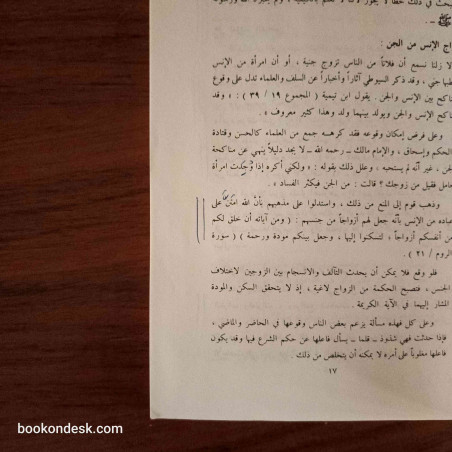 يبحث في ذلك خطأ لا يجوز
ﷺ ـ .
اج الإنس من الجن :
لا زلنا نسمع أن فلاناً من الناس تزوج جنية ، أو أن امرأة من الإنس
طبها جني ، وقد ذكر السيوطي آثاراً وأخباراً عن السلف والعلماء تدل على وقوع
ناكح بين الإنس والجن . يقول ابن تيمية ( المجموع ١٩ / ٣٩ ) : « وقد
ناكح الإنس والجن ويولد بينهما ولد وهذا كثير معروف » .
وعلى فرض إمكان وقوعه فقد كرهه جمع من العلماء كالحسن وقتادة
الحكم وإسحاق ، والإمام مالك ـ رحمه الله ـ لا يجد دليلاً ينهى عن مناكحة
لجن ، غير أنه لم يستحبه ، وعلل ذلك بقوله : « ولكني أكره إذا وُجدت امرأة
عامل فقيل من زوجك ؟ قالت : من الجن فيكثر الفساد » .
وذهب قوم إلى المنع من ذلك ، واستدلوا على مذهبهم بأنّ الله امتن على
عباده من الإنس بأنّه جعل لهم أزواجاً من جنسهم : ( ومن آياته أن خلق لكم
من أنفسكم أزواجاً ، لتسكنوا إليها ، وجعل بينكم مودة ورحمة ) ( سورة
الروم / ٢١ ) .
فلو وقع فلا يمكن أن يحدث التآلف والانسجام بين الزوجين لاختلاف
الجنس ، فتصبح الحكمة من الزواج لاغية ، إذ لا يتحقق السكن والمودة
المشار إليهما في الآية الكريمة .
وعلى كل فهذه مسألة يزعم بعض الناس وقوعها في الحاضر والماضي ،
فإذا حدثت فهي شذوذ ـ قلما ـ يسأل فاعلها عن حكم الشرع فيها وقد يكون
فاعلها مغلوباً على أمره لا يمكنه أن يتخلص من ذلك .
١٧
bookondesk.com